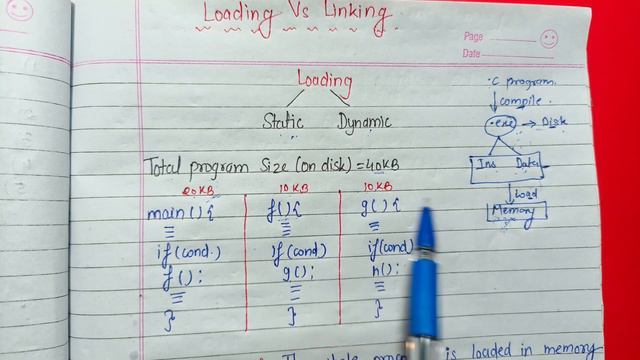 Loading Vs Linking.
Page
Date
Loading
Static Dynamic
.C program.
compile.
.exe → Disk
Ins Data
Load
Memory
Total program Size (on disk) = 40KB
20KB 10KB 10KB
main(){ f(){ g(){
if(cond.) if(cond) if(cond)
f(); g(); h();
} } }
The whole is loaded in memory